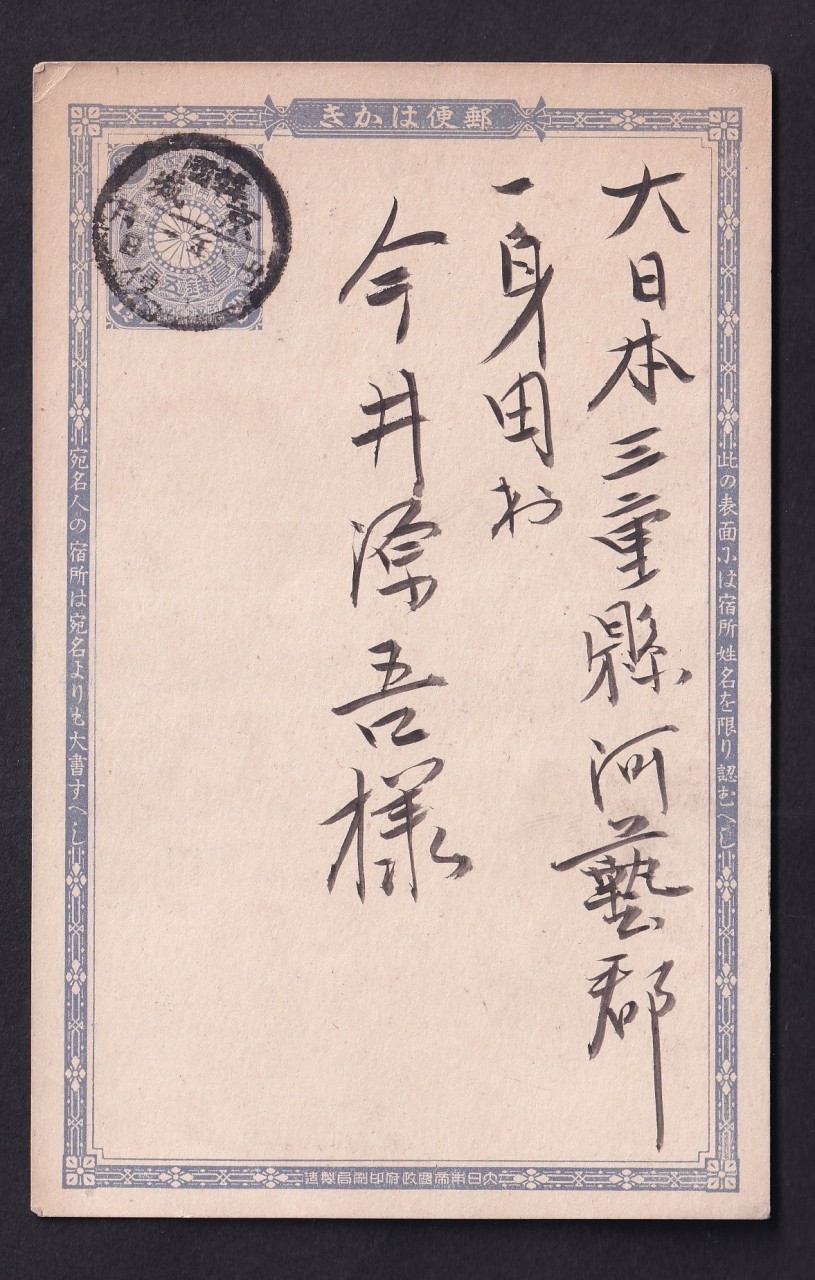 郵便はかき
此の表面には宿所姓名を限り認むへし
大日本三重縣河藝郡
一身田村
今井源吾様
宛名人の宿所は宛名よりも大書すへし
大日本帝國政府印刷局製造